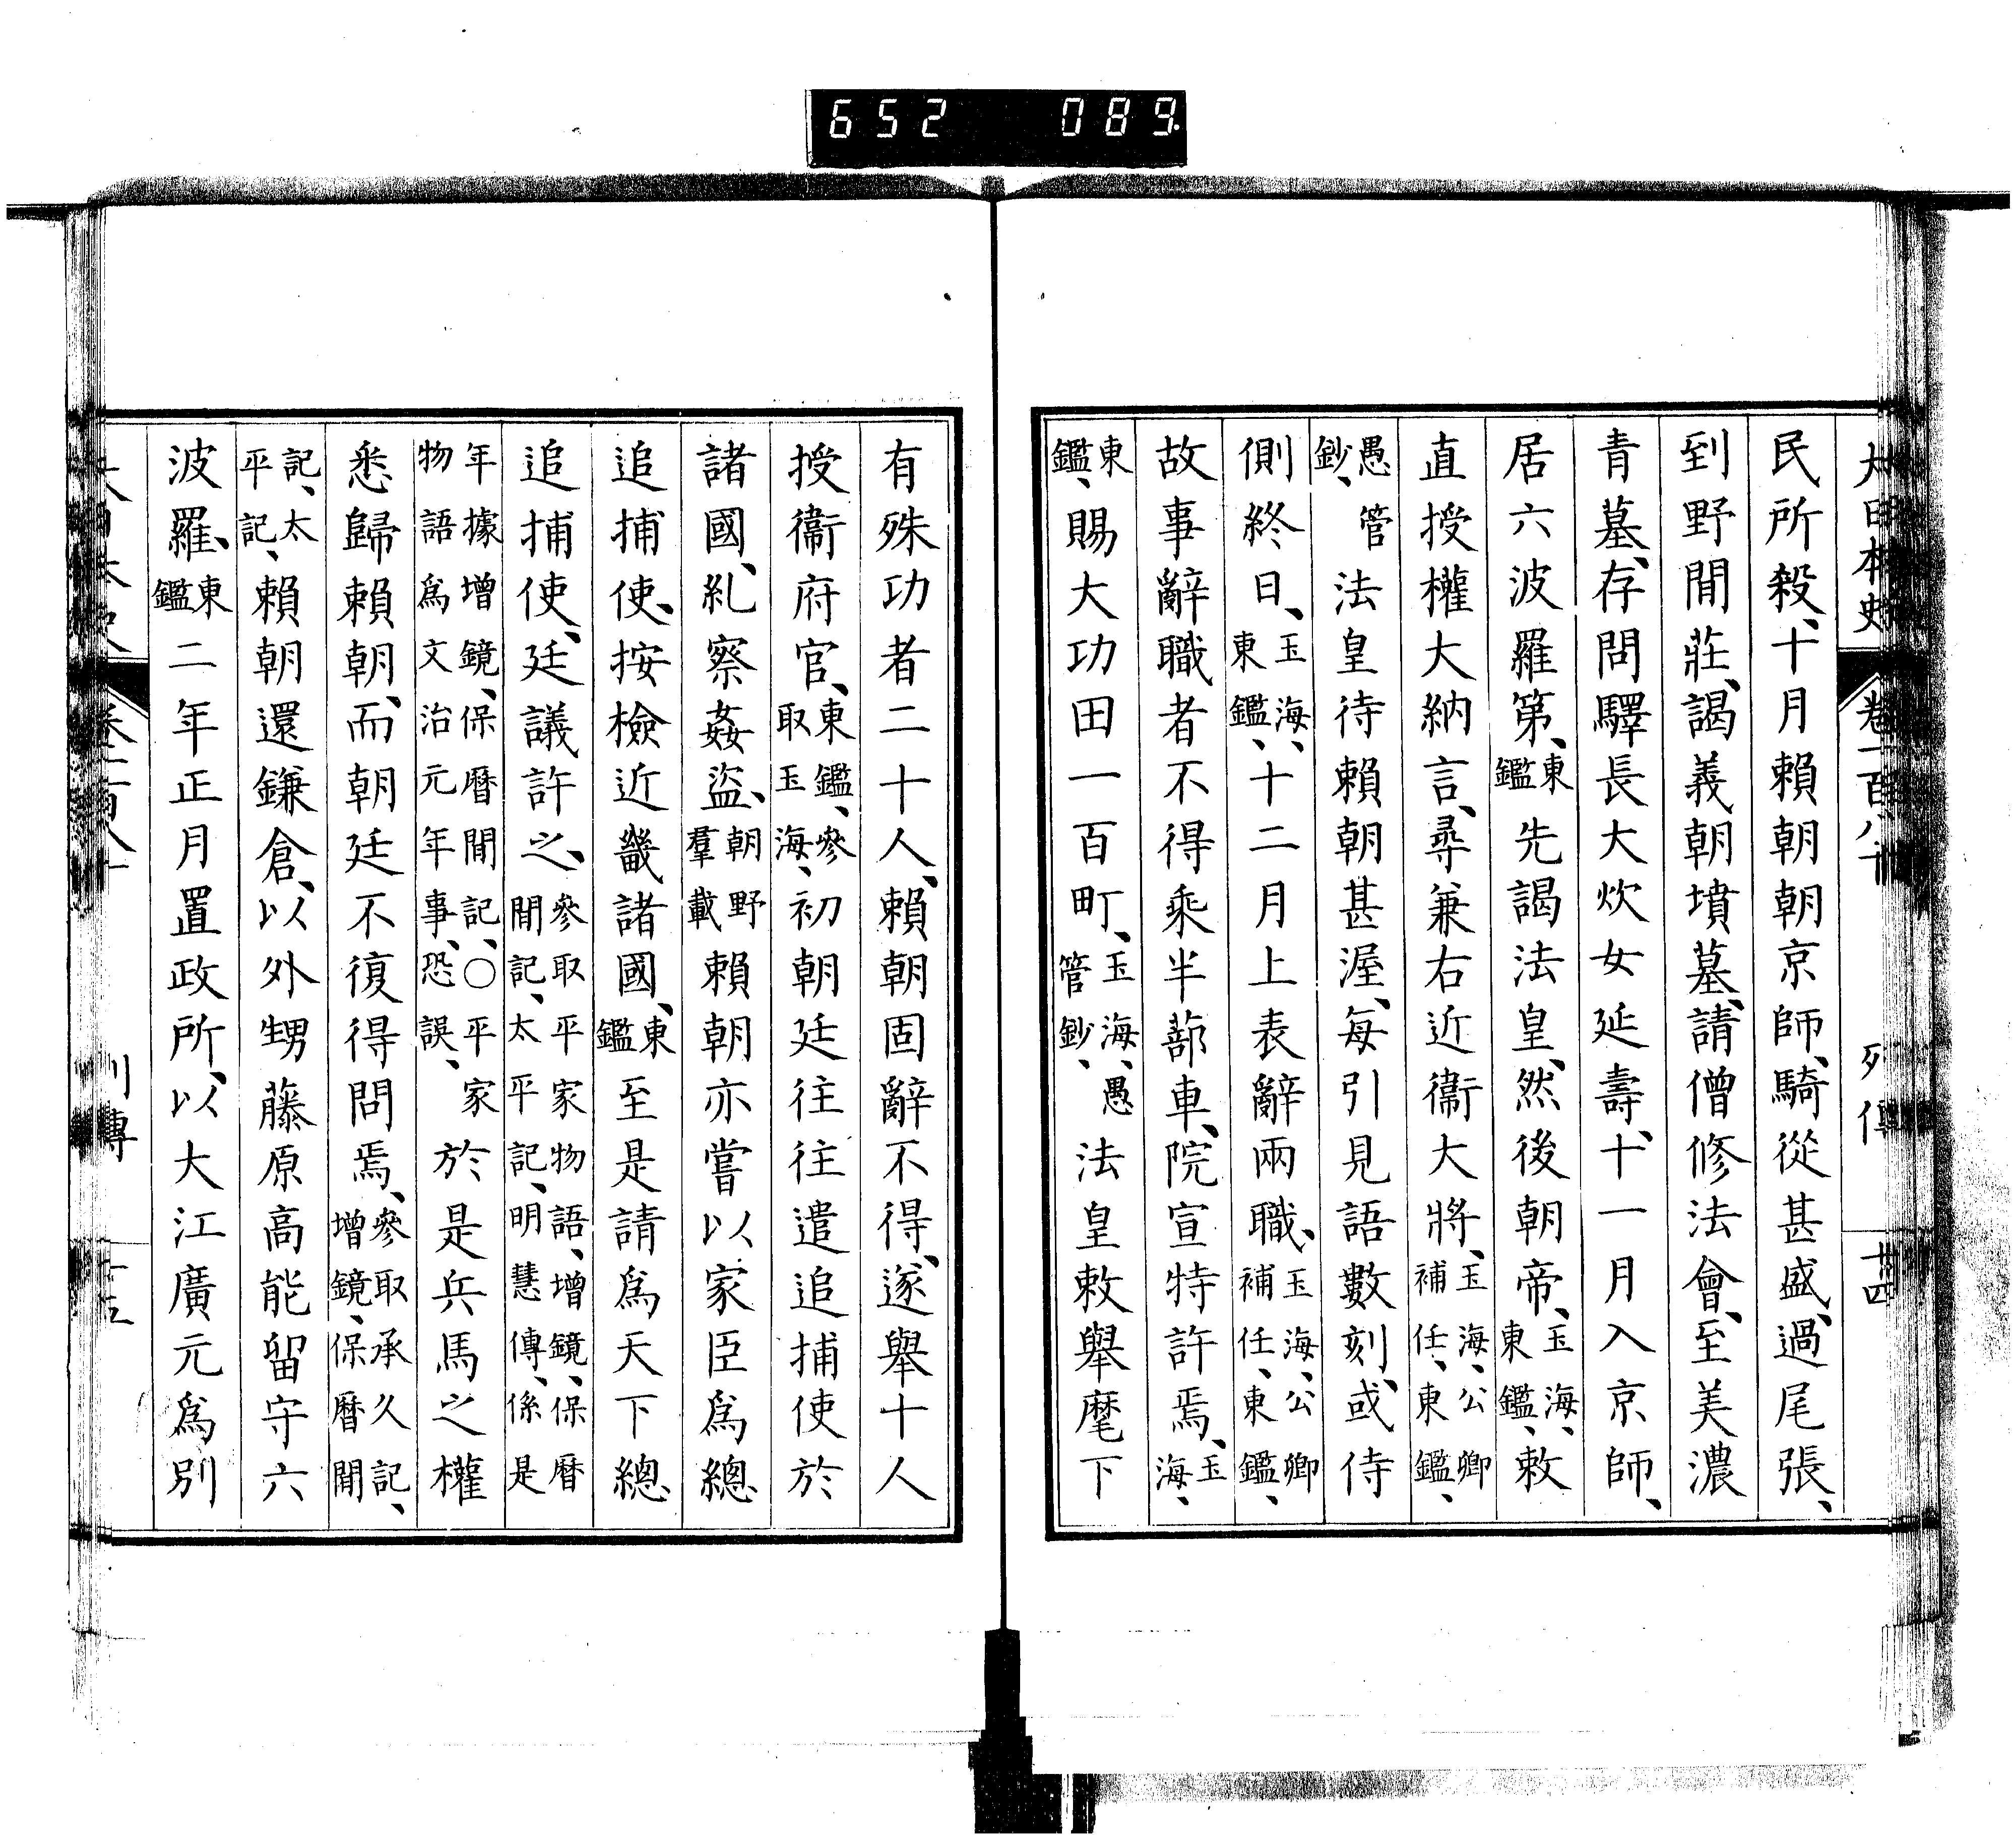 652 089.
大日本史 卷一百八十 列傳 十四
民所殺、十月賴朝朝京師、騎從甚盛、過尾張、
到野間莊、謁義朝墳墓、請僧修法會、至美濃
青墓、存問驛長大炊女延壽、十一月入京師、
居六波羅第、東鑑先謁法皇、然後朝帝、玉海、東鑑、敕
直授權大納言、尋兼右近衞大將、玉海、公卿補任、東鑑、
愚管鈔、法皇待賴朝甚渥、每引見語數刻、或侍
側終日、玉海、東鑑、十二月上表辭兩職、玉海、公卿補任、東鑑、
故事辭職者不得乘半蔀車、院宣特許焉、玉海、
東鑑、賜大功田一百町、玉海、愚管鈔、法皇敕舉麾下
有殊功者二十人、賴朝固辭不得、遂舉十人
授衞府官、東鑑、參取玉海、初朝廷往往遣追捕使於
諸國、糺察姦盜、朝野羣載賴朝亦嘗以家臣爲總
追捕使、按檢近畿諸國、東鑑至是請爲天下總
追捕使、廷議許之、參取平家物語、增鏡、保曆間記、太平記、明慧傳、係是
年據增鏡、保曆間記、〇平家物語爲文治元年事、恐誤、於是兵馬之權
悉歸賴朝、而朝廷不復得問焉、參取承久記、增鏡、保曆間
記、太平記、賴朝還鎌倉、以外甥藤原高能留守六
波羅、東鑑二年正月置政所、以大江廣元爲別
列傳